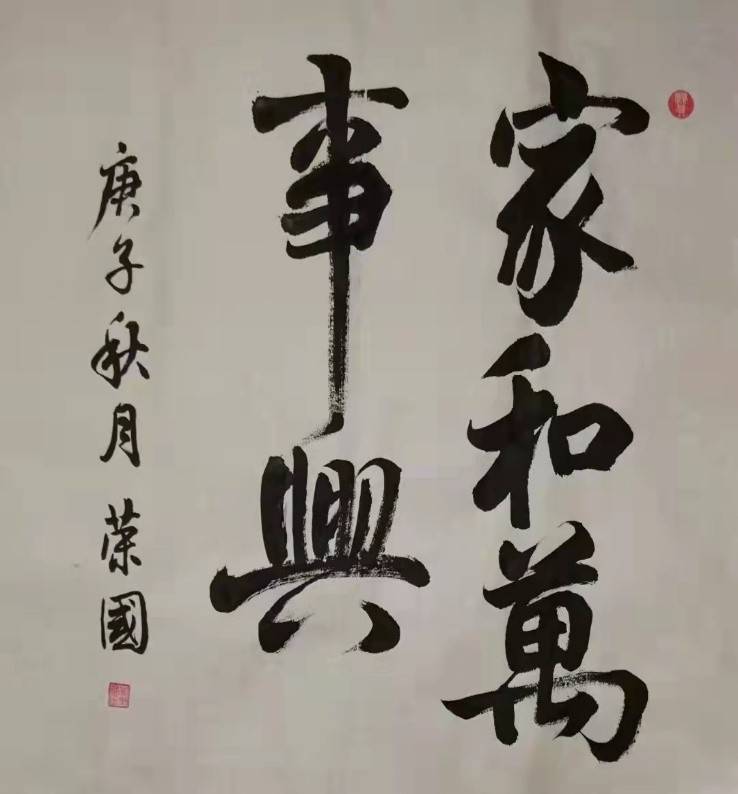 家和萬
事興
庚子秋月 荣國